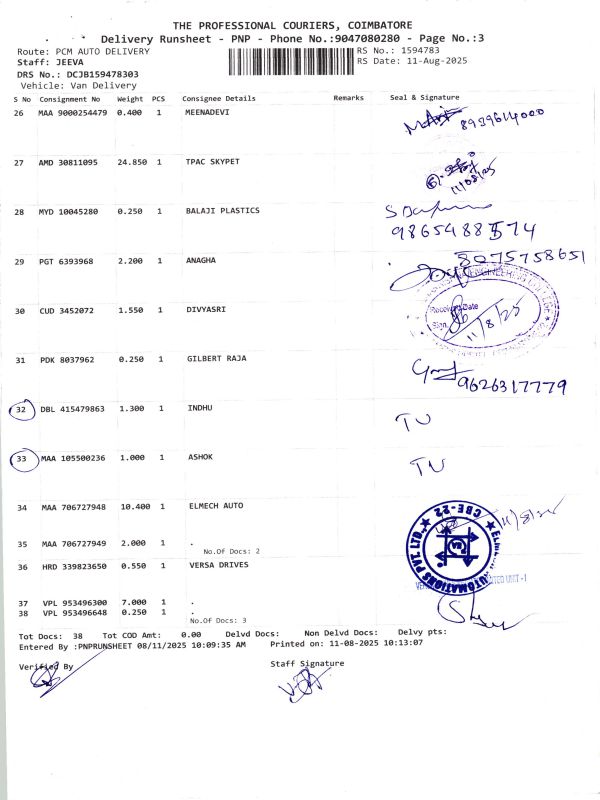 THE PROFESSIONAL COURIERS, COIMBATORE
Delivery Runsheet - PNP - Phone No.:9047080280 - Page No.:3
Route: PCM AUTO DELIVERY RS No.: 1594783
Staff: JEEVA RS Date: 11-Aug-2025
DRS No.: DCJB159478303
Vehicle: Van Delivery
S No Consignment No Weight PCS Consignee Details Remarks Seal & Signature
26 MAA 9000254479 0.400 1 MEENADEVI 8939614000
27 AMD 30811095 24.850 1 TPAC SKYPET
11/08/25
28 MYD 10045280 0.250 1 BALAJI PLASTICS
9865488574
29 PGT 6393968 2.200 1 ANAGHA 8075758651
30 CUD 3452072 1.550 1 DIVYASRI
Date
Sign. 11/8/25
31 PDK 8037962 0.250 1 GILBERT RAJA
9626317779
32 DBL 415479863 1.300 1 INDHU
33 MAA 105500236 1.000 1 ASHOK
34 MAA 706727948 10.400 1 ELMECH AUTO
CBE-22
AUTOMATIONS PVT. LTD.
35 MAA 706727949 2.000 1 .
No.Of Docs: 2
36 HRD 339823650 0.550 1 VERSA DRIVES
UNIT -1
37 VPL 953496300 7.000 1 .
38 VPL 953496648 0.250 1 .
No.Of Docs: 3
Tot Docs: 38 Tot COD Amt: 0.00 Delvd Docs: Non Delvd Docs: Delvy pts:
Entered By :PNPRUNSHEET 08/11/2025 10:09:35 AM Printed on: 11-08-2025 10:13:07
Verified By Staff Signature